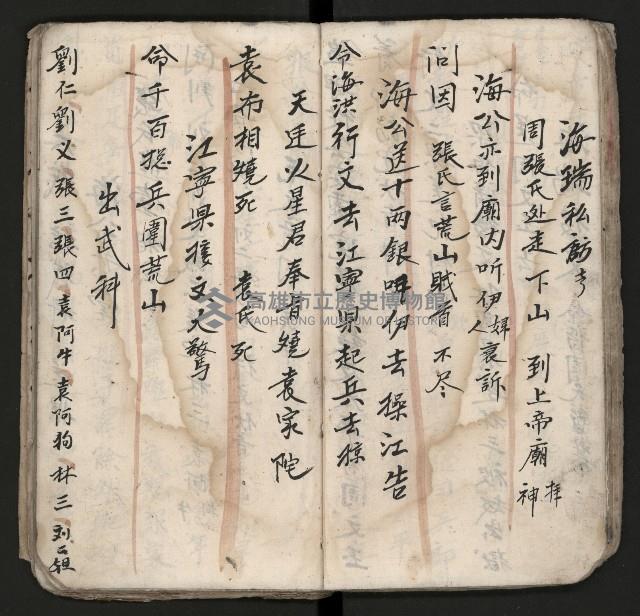 海瑞私訪
周張氏处走下山 到上帝廟拜神
海公亦到廟内听伊婦人哀訴
问因 張氏言荒山賊首不尽
海公送十两銀 伊去操江告
令海洪行文去江寧県起兵去
天廷火星君奉旨燒袁家陀
袁布相燒死 袁氏死
江寧県接文大驚
命千百揔兵圍荒山
出武科
劉仁劉义張三張四袁阿牛袁阿狗林三刘
高雄市立歷史博物館
KAOHSIUNG MUSEUM OF HISTORY